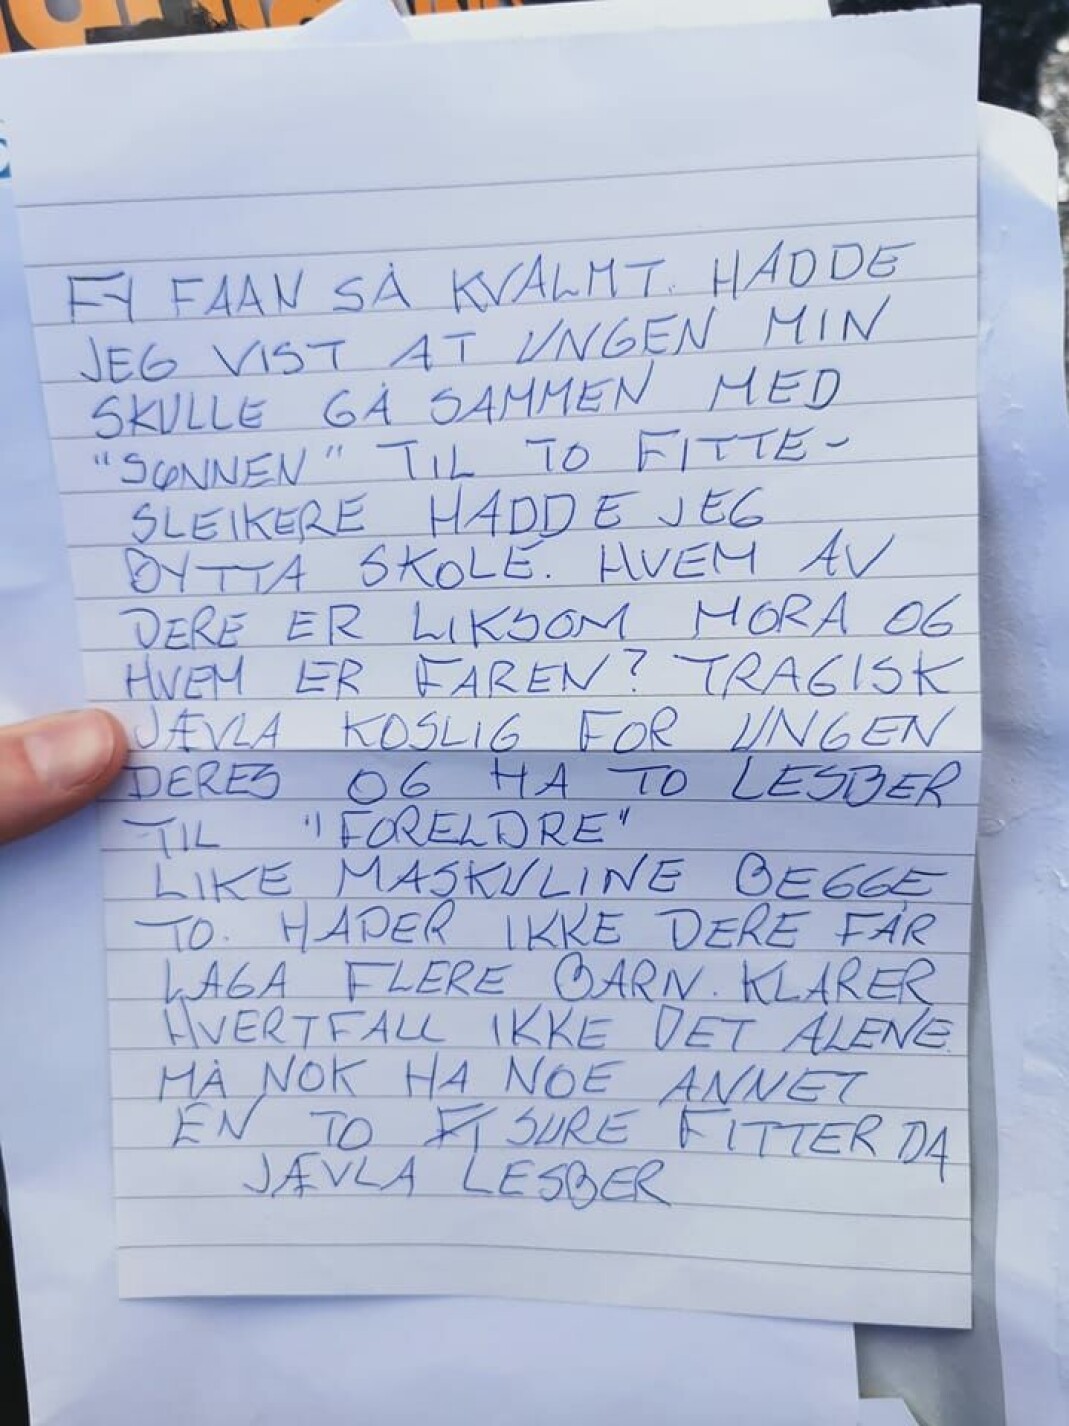 FY FAAN SÅ KVALMT. HADDE
JEG VIST AT UNGEN MIN
SKULLE GÅ SAMMEN MED
"SØNNEN" TIL TO FITTE-
SLEIKERE HADDE JEG
BYTTA SKOLE. HVEM AV
DERE ER LIKSOM MORA OG
HVEM ER FAREN? TRAGISK
JÆVLA KOSLIG FOR UNGEN
DERES OG HA TO LESBER
TIL "FORELDRE"
LIKE MASKULINE BEGGE
TO. HÅPER IKKE DERE FÅR
LAGA FLERE BARN. KLARER
HVERTFALL IKKE DET ALENE.
MÅ NOK HA NOE ANNET
EN TO SURE FITTER DA
JÆVLA LESBER